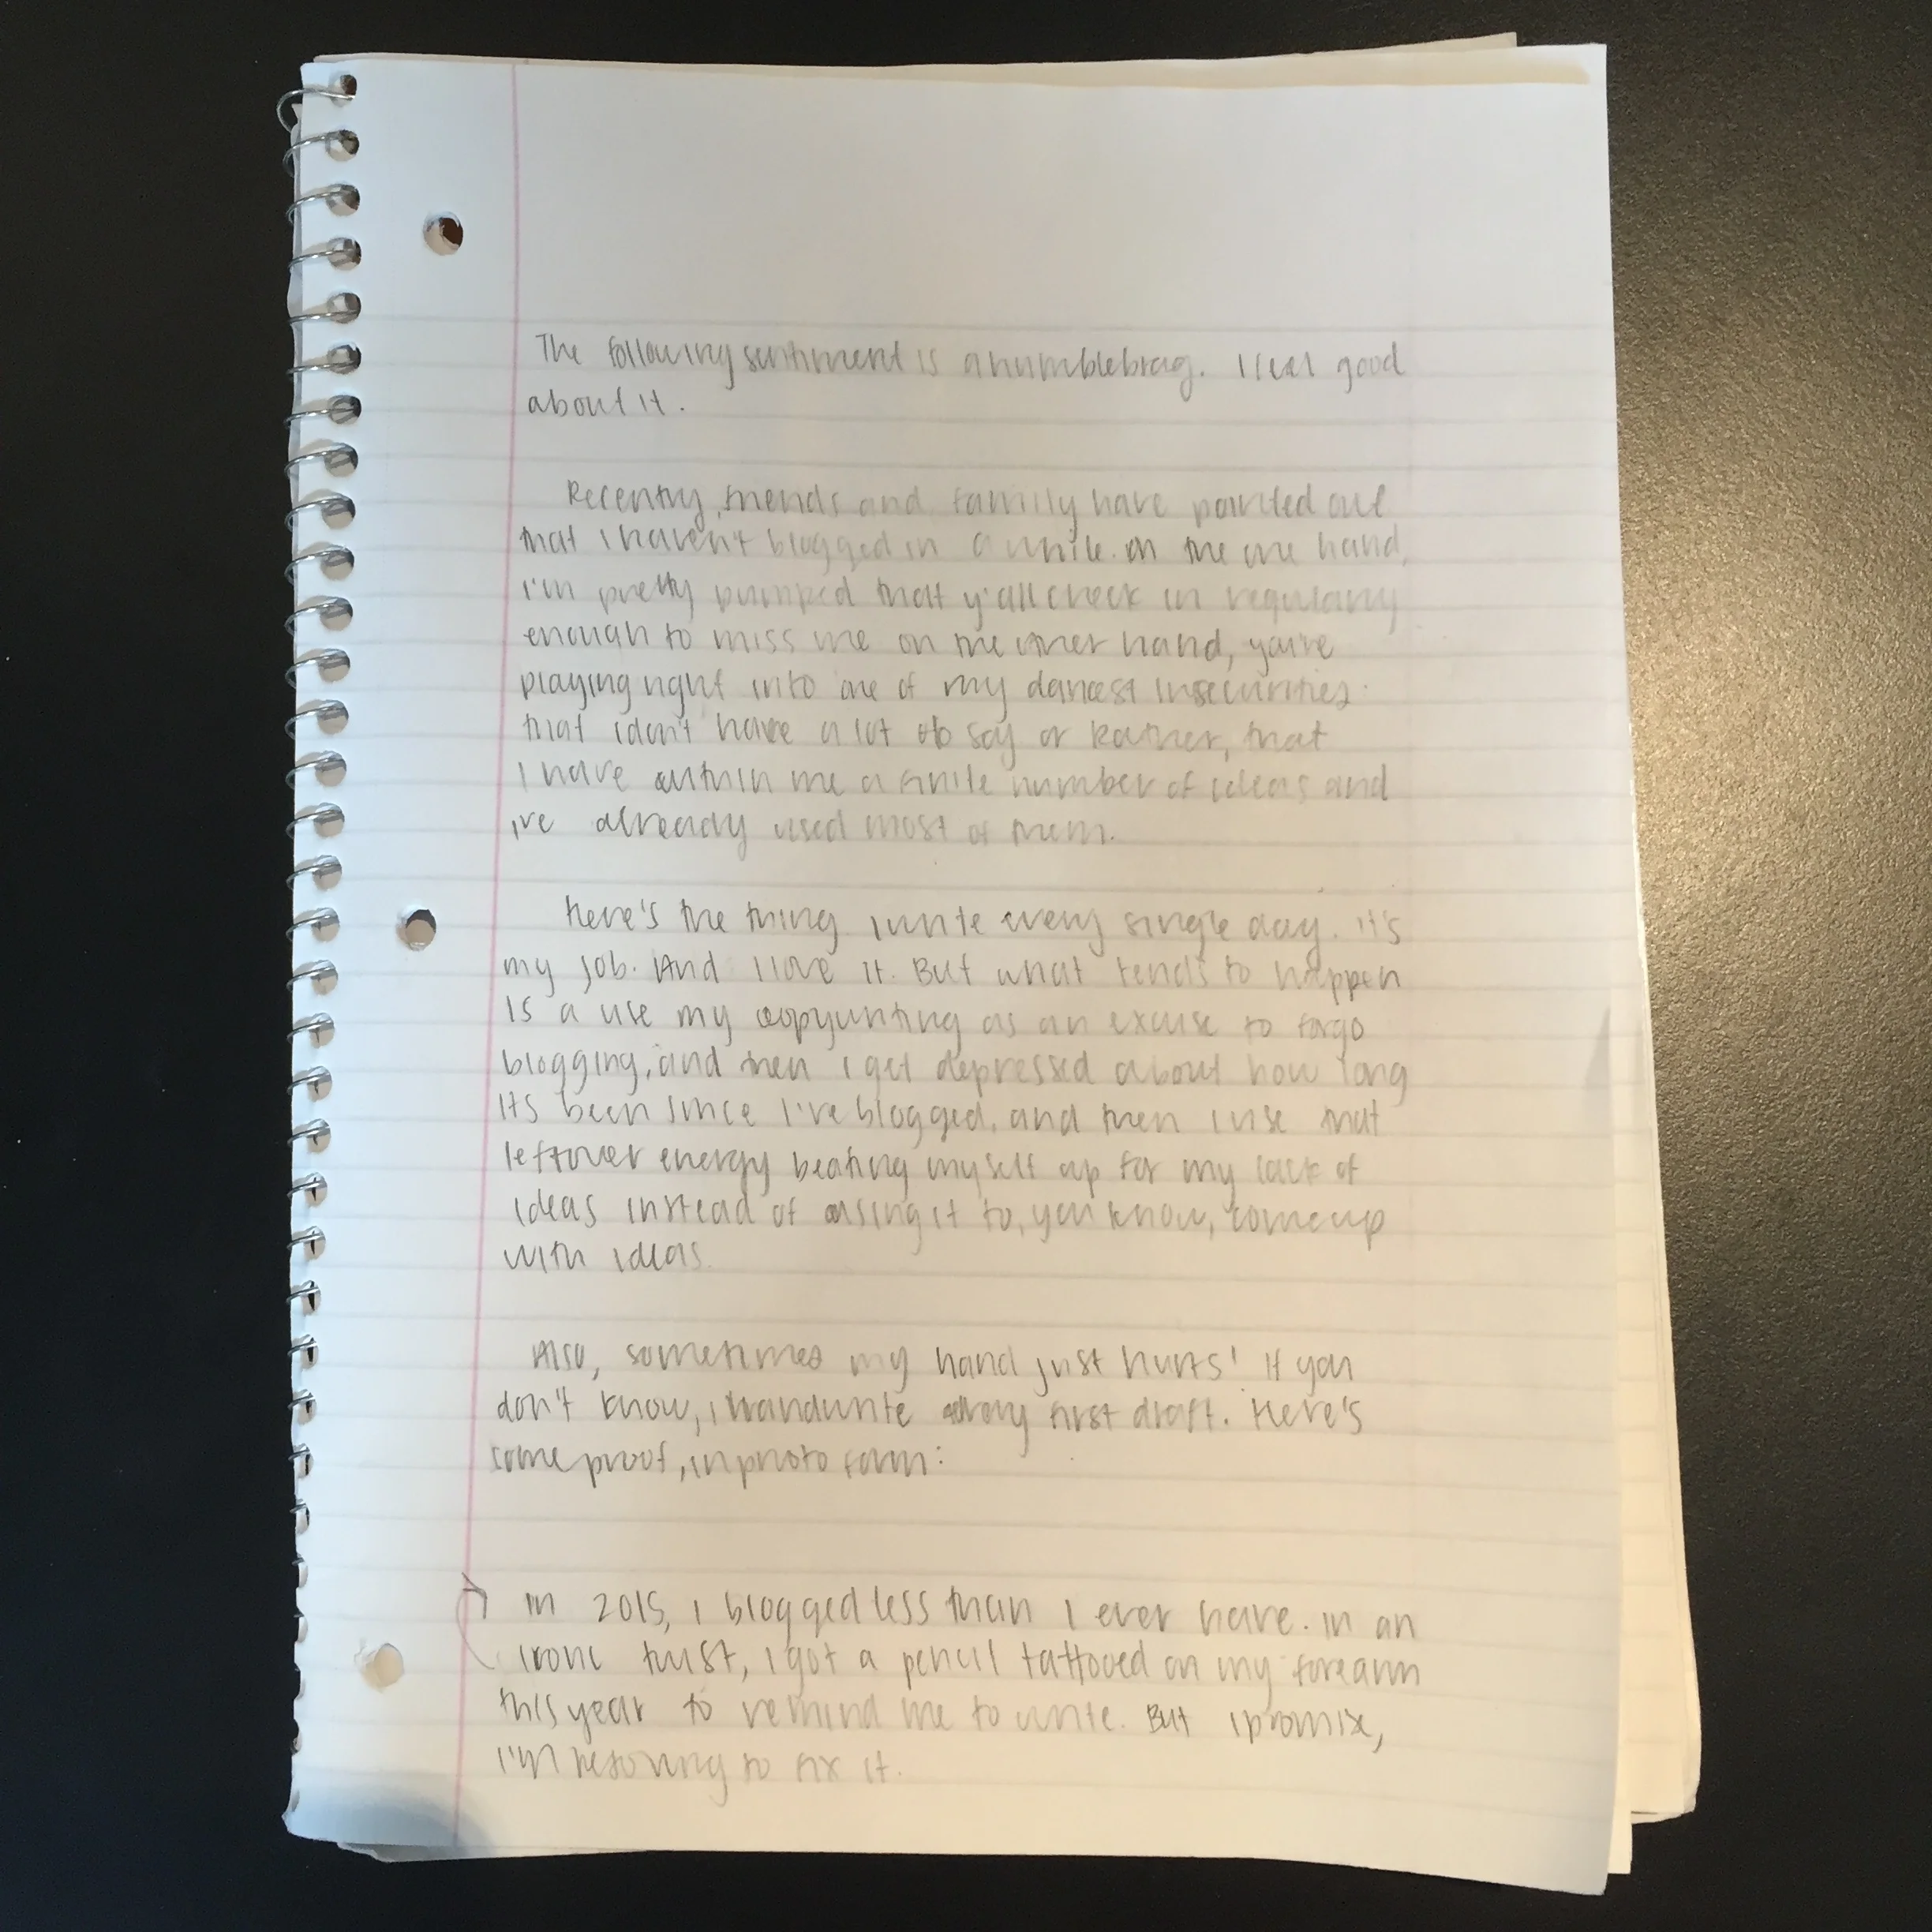 The following sentiment is a humblebrag. I feel good
about it.
Recently, friends and family have pointed out
that I haven't blogged in a while. On the one hand,
I'm pretty pumped that y'all check in regularly
enough to miss me. On the other hand, you're
playing right into one of my darkest insecurities:
that I don't have a lot to say or Rather, that
I have within me a finite number of ideas and
I've already used most of them.
Here's the thing. I write every single day. It's
my job. And I love it. But what tends to happen
is a use my copywriting as an excuse to forgo
blogging, and then I get depressed about how long
its been since I've blogged, and then I use that
leftover energy beating myself up for my lack of
ideas instead of using it to, you know, come up
with ideas.
Also, sometimes my hand just hurts! If you
don't know, I handwrite every first draft. Here's
some proof, in photo form:
In 2015, I blogged less than I ever have. In an
ironic twist, I got a pencil tattooed on my forearm
this year to remind me to write. But I promise,
I'm resolving to fix it.